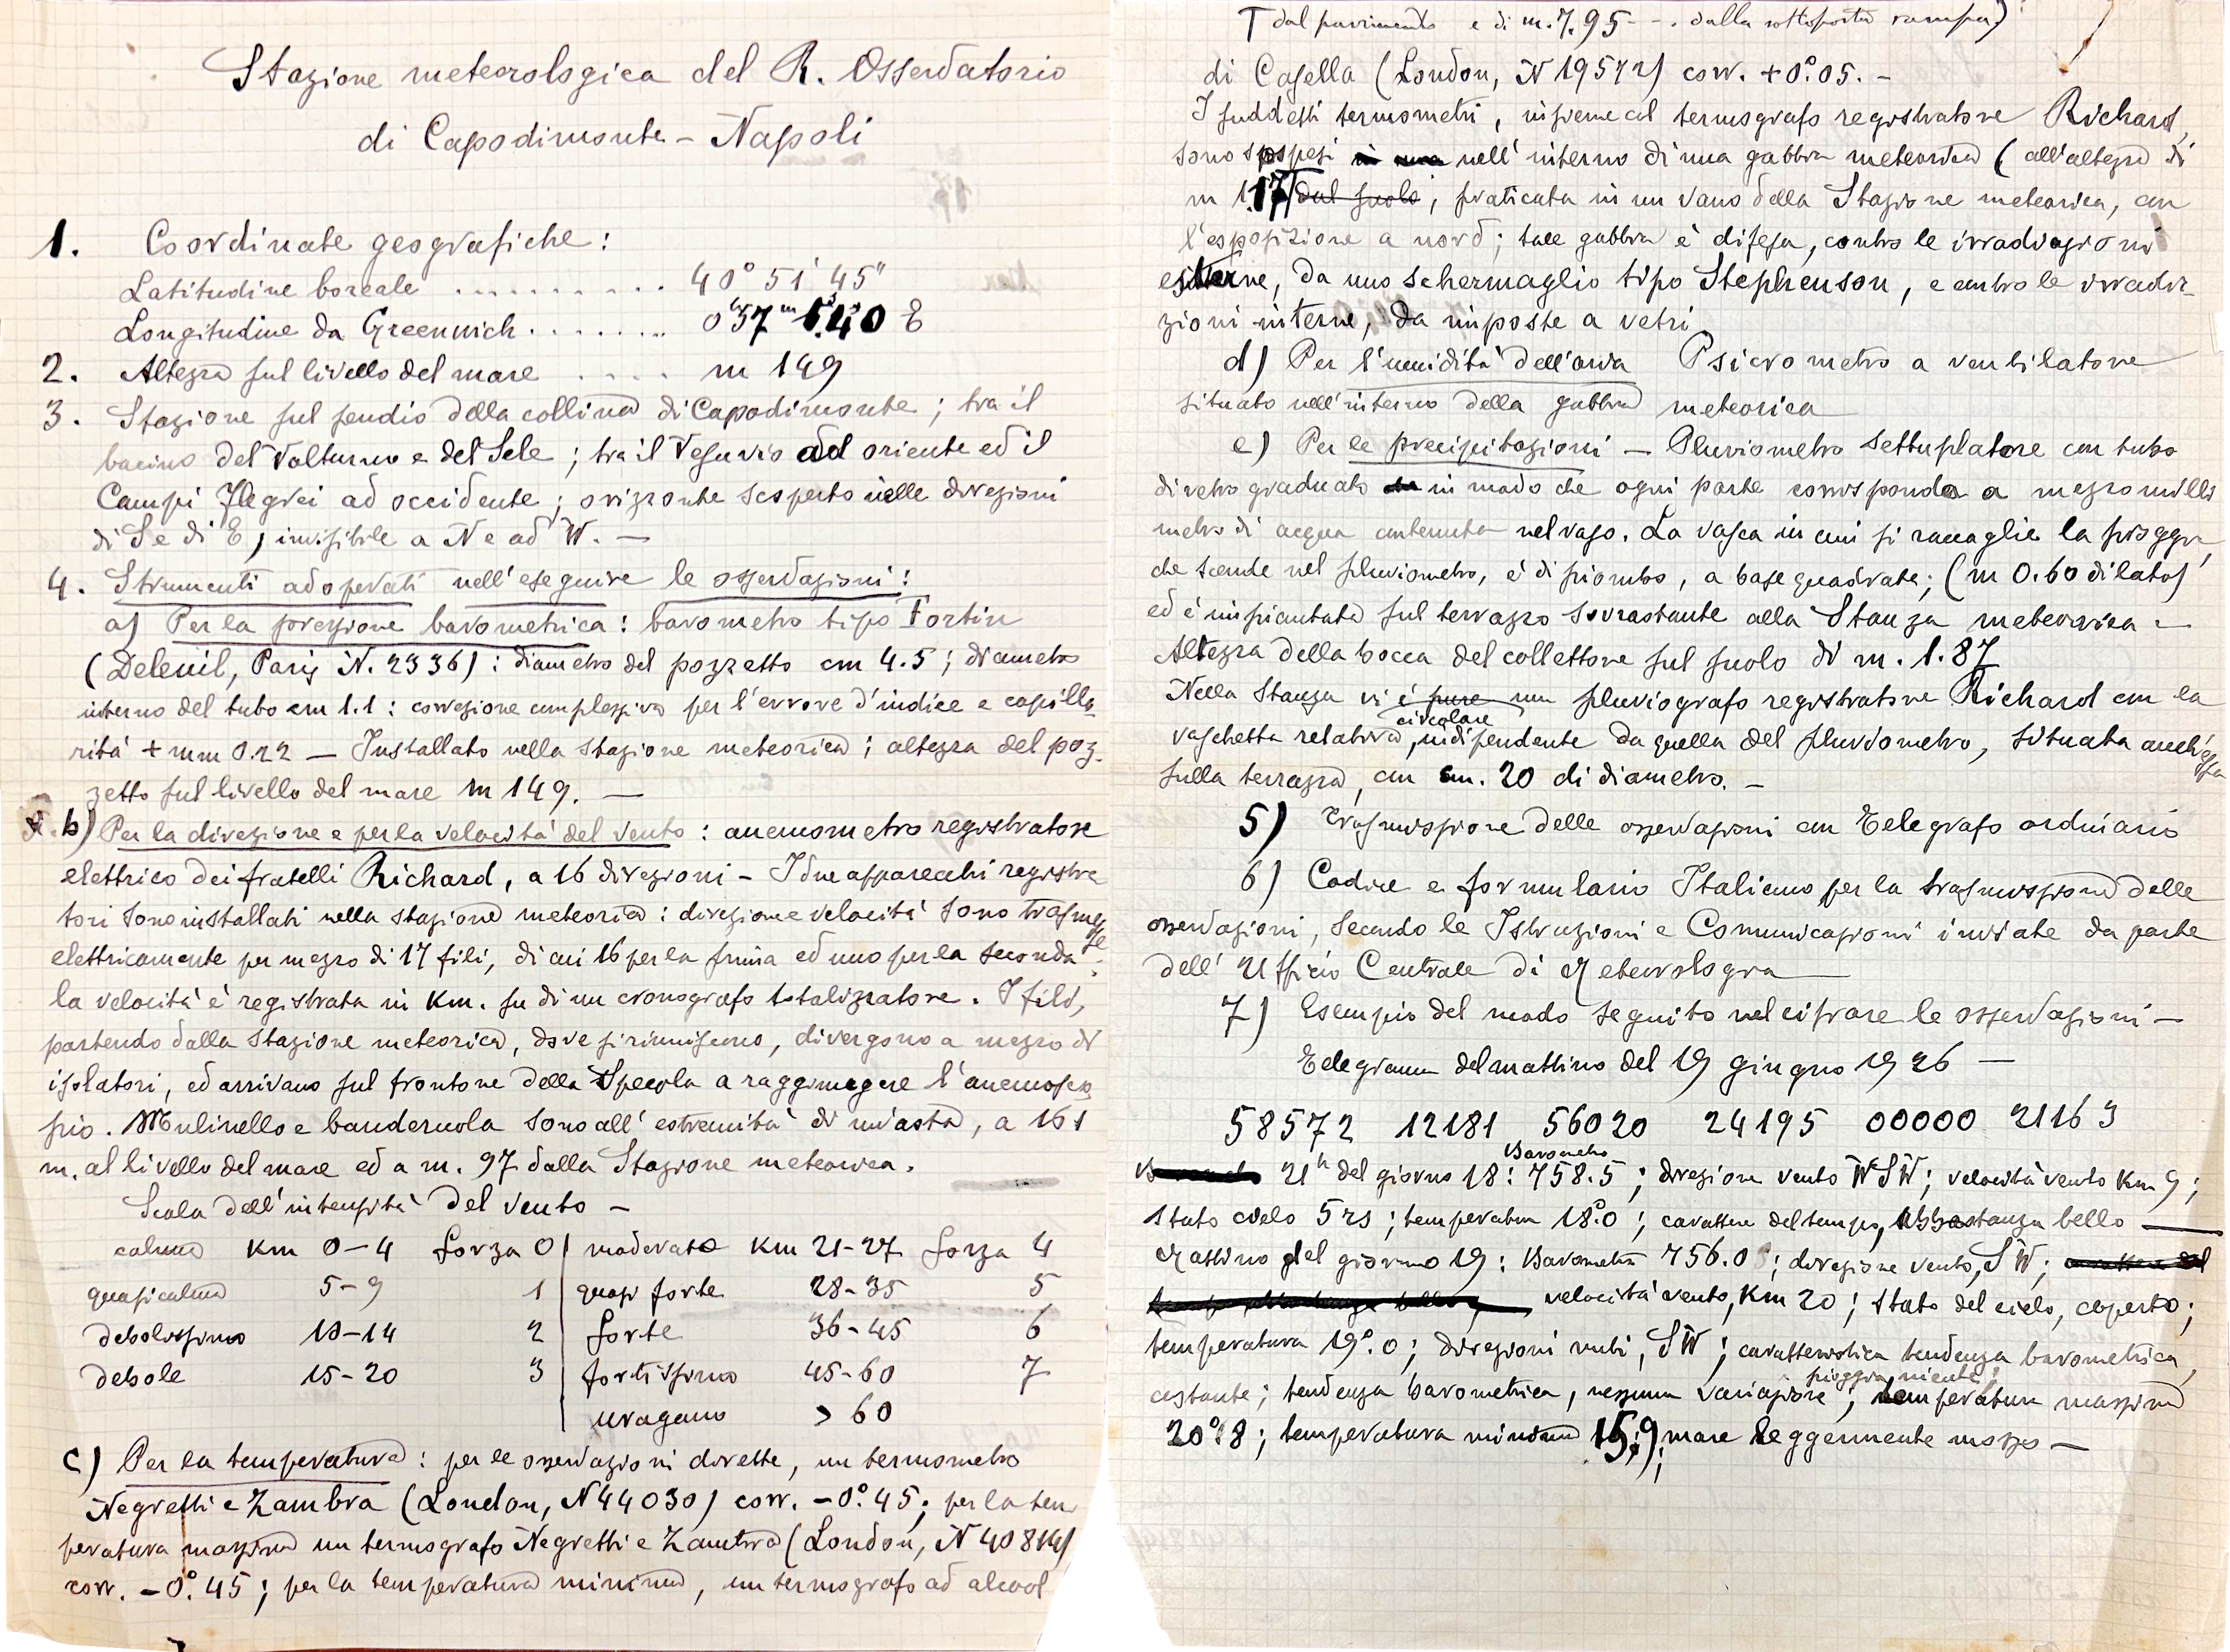 Stazione meteorologica del R. Osservatorio
di Capodimonte - Napoli
1. Coordinate geografiche:
Latitudine boreale .......... 40° 51' 45"
Longitudine da Greenwich ....... 0h 57m 1s.40 E
2. Altezza sul livello del mare .... m 149
3. Stazione sul pendio della collina di Capodimonte; tra il
bacino del Volturno e del Sele; tra il Vesuvio ad oriente ed i
Campi Flegrei ad occidente; orizzonte scoperto nelle direzioni
di S e di E, invisibile a N e ad W. —
4. Strumenti adoperati nell'eseguire le osservazioni:
a) Per la pressione barometrica: barometro tipo Fortin
(Deleuil, Paris N. 2336): diametro del pozzetto cm 4.5; diametro
interno del tubo cm 1.1: correzione complessiva per l'errore d'indice e capilla-
rità + mm 0.22 — Installato nella stazione meteorica; altezza del poz-
zetto sul livello del mare m 149. —
b) Per la direzione e per la velocità del vento: anemometro registratore
elettrico dei fratelli Richard, a 16 direzioni - I due apparecchi registra
tori sono installati nella stazione meteorica: direzione e velocità sono trasmesse
elettricamente per mezzo di 17 fili, di cui 16 per la prima ed uno per la seconda:
la velocità è registrata in Km. su di un cronografo totalizzatore. I fili,
partendo dalla stazione meteorica, dove si riuniscono, divergono a mezzo di
isolatori, ed arrivano sul frontone della Specola a raggiungere l'anemosco-
pio. Mulinello e banderuola sono all'estremità di un'asta, a 161
m. al livello del mare ed a m. 97 dalla Stazione meteorica.
Scala dell'intensità del vento —
calma Km 0-4 forza 0 | moderato Km 21-27 forza 4
quasi calma 5-9 1 | quasi forte 28-35 5
debolissimo 10-14 2 | forte 36-45 6
debole 15-20 3 | fortissimo 45-60 7
uragano > 60
c) Per la temperatura: per le osservazioni dirette, un termometro
Negretti e Zambra (London, N 44030) corr. -0°.45; per la tem
peratura massima un termografo Negretti e Zambra (London, N 40814)
corr. -0°.45; per la temperatura minima, un termografo ad alcool
T dal pavimento e di m. 7.95 --. dalla sottoposta rampa)
di Casella (London, N 19572) corr. +0°.05. -
I suddetti termometri, insieme al termografo registratore Richard,
sono sospesi nell'interno di una gabbia meteorica (all'altezza di
m 1.17 T dal suolo; praticata in un vano della Stazione meteorica, con
l'esposizione a nord; tale gabbia è difesa, contro le irradiazioni
esterne, da uno schermaglio tipo Stephenson, e contro le irradia-
zioni interne, da imposte a vetri.
d) Per l'umidità dell'aria Psicrometro a ventilatore
situato nell'interno della gabbia meteorica
e) Per le precipitazioni — Pluviometro settuplatore con tubo
di vetro graduato in modo che ogni parte corrisponda a mezzo milli
metro di acqua contenuta nel vaso. La vasca in cui si raccoglie la pioggia,
che scende nel pluviometro, è di piombo, a base quadrata; (m 0.60 di lato)
ed è impiantata sul terrazzo sovrastante alla Stanza meteorica -
Altezza della bocca del collettore sul suolo di m. 1.87
Nella Stanza vi è pure un pluviografo registratore Richard con la
vaschetta relativa, circolare indipendente da quella del pluviometro, situata anch'essa
sulla terrazza, con cm. 20 di diametro. -
5) Trasmissione delle osservazioni con Telegrafo ordinario
6) Codice e formulario Italiano per la trasmissione delle
osservazioni, secondo le Istruzioni e Comunicazioni inviate da parte
dell'Ufficio Centrale di Meteorologia
7) Esempio del modo seguito nel cifrare le osservazioni —
Telegramma del mattino del 19 giugno 1926 —
58572 12181 56020 24195 00000 21163
21h del giorno 18: Barometro 758.5; direzione vento WSW; velocità vento Km 9;
Stato cielo 5 rs; temperatura 18°.0; carattere del tempo, abbastanza bello —
Mattino del giorno 19: Barometro 756.0; direzione vento, SW;
velocità vento, Km 20; stato del cielo, coperto;
temperatura 19°.0; direzioni nubi, SW; caratteristica tendenza barometrica,
costante; tendenza barometrica, nessuna variazione; pioggia niente; temperatura massima
20°.8; temperatura minima 15.9; mare leggermente mosso —